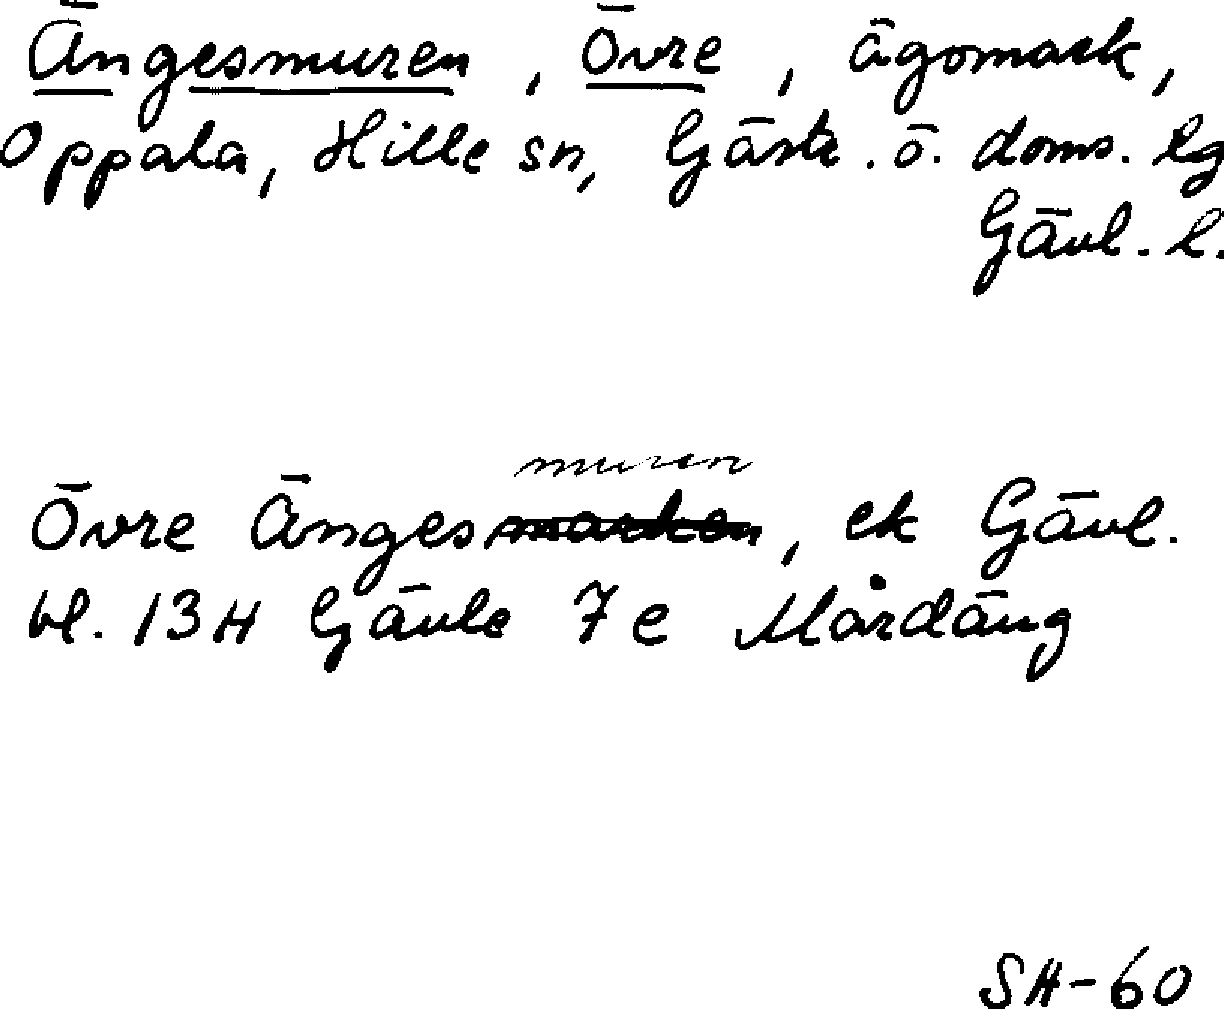 Ängesmuren, Övre, ägomark,
Oppala, Hille sn, Gästr. ö. doms. lg
Gävl. l.
muren
Övre Ängesmarken, ek Gävl.
bl. 13H Gävle 7e Mårdäng
SH-60